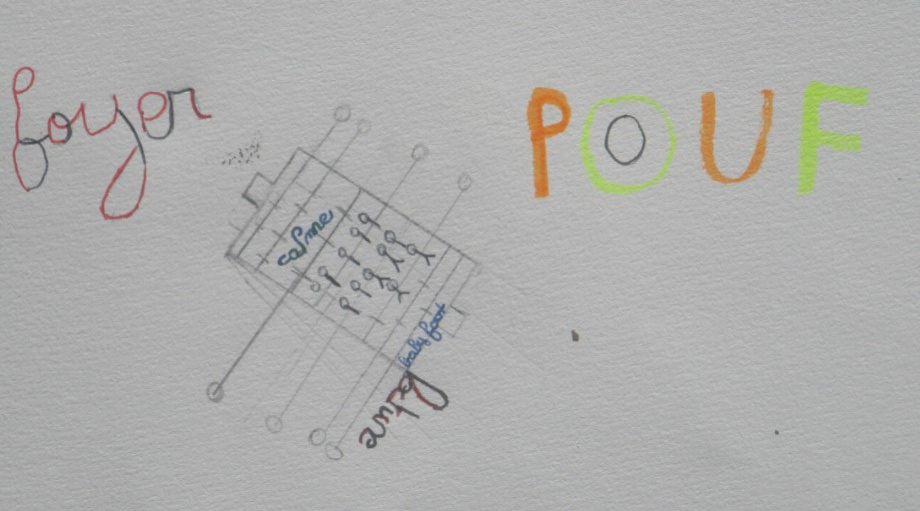 foyer
POUF
calme
baby foot